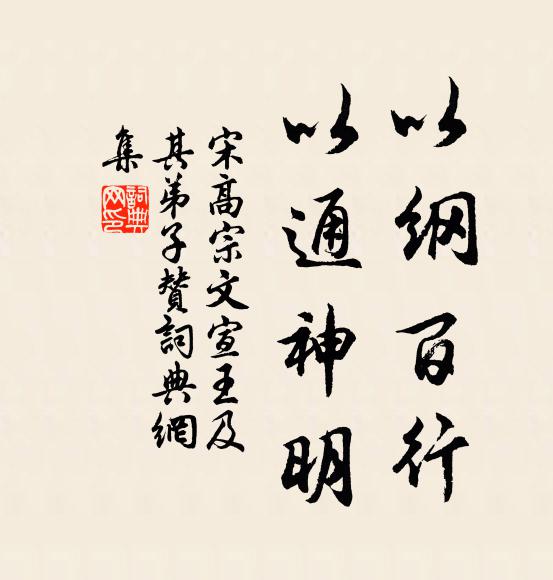 以纲百行
以通神明
宋高宗文宣王及
其弟子赞詞典網
集
詞典網印